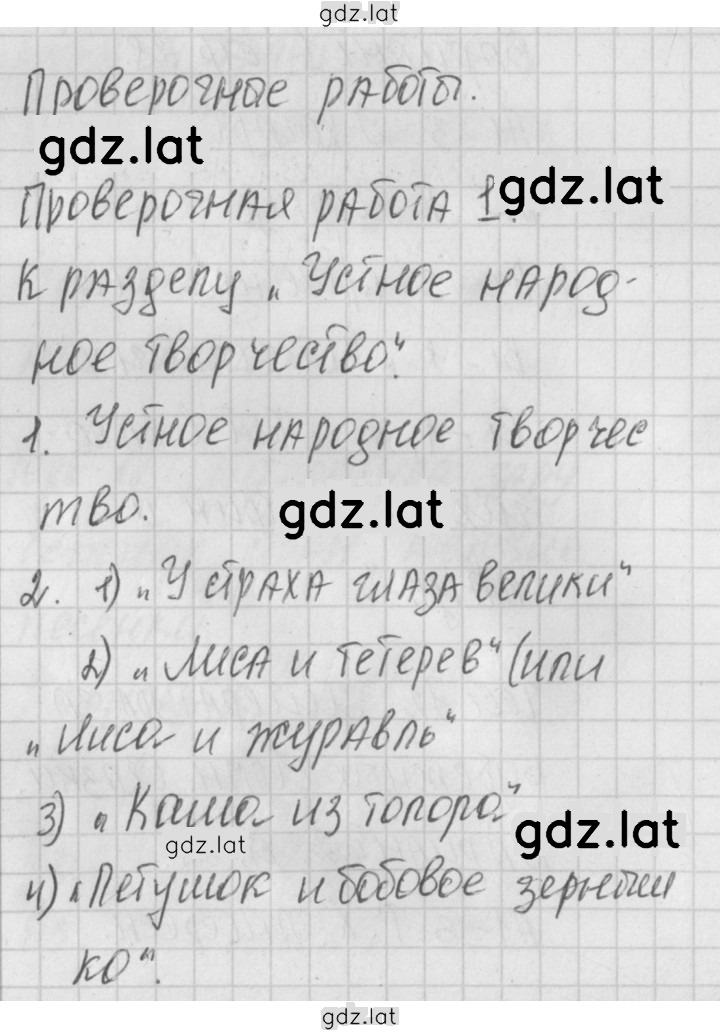 gdz.lat
Проверочные работы.
gdz.lat
gdz.lat
Проверочная работа 1.
К разделу „Устное народ-
ное творчество“.
1. Устное народное творчес
тво.
gdz.lat
2. 1) „У страха глаза велики“
2) „Лиса и тетерев“ (или
„Лиса и журавль“
3) „Каша из топора“
gdz.lat
gdz.lat
4) „Петушок и бобовое зернышко
ко“.
gdz.lat